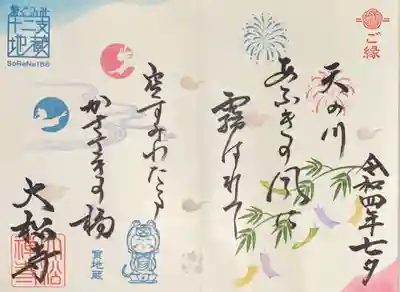 ご縁
令和四年七夕
天の川
あふきの風に
霧はれて
空すみわたる
かささきの橋
寅地蔵
大松寺
十二支
地蔵